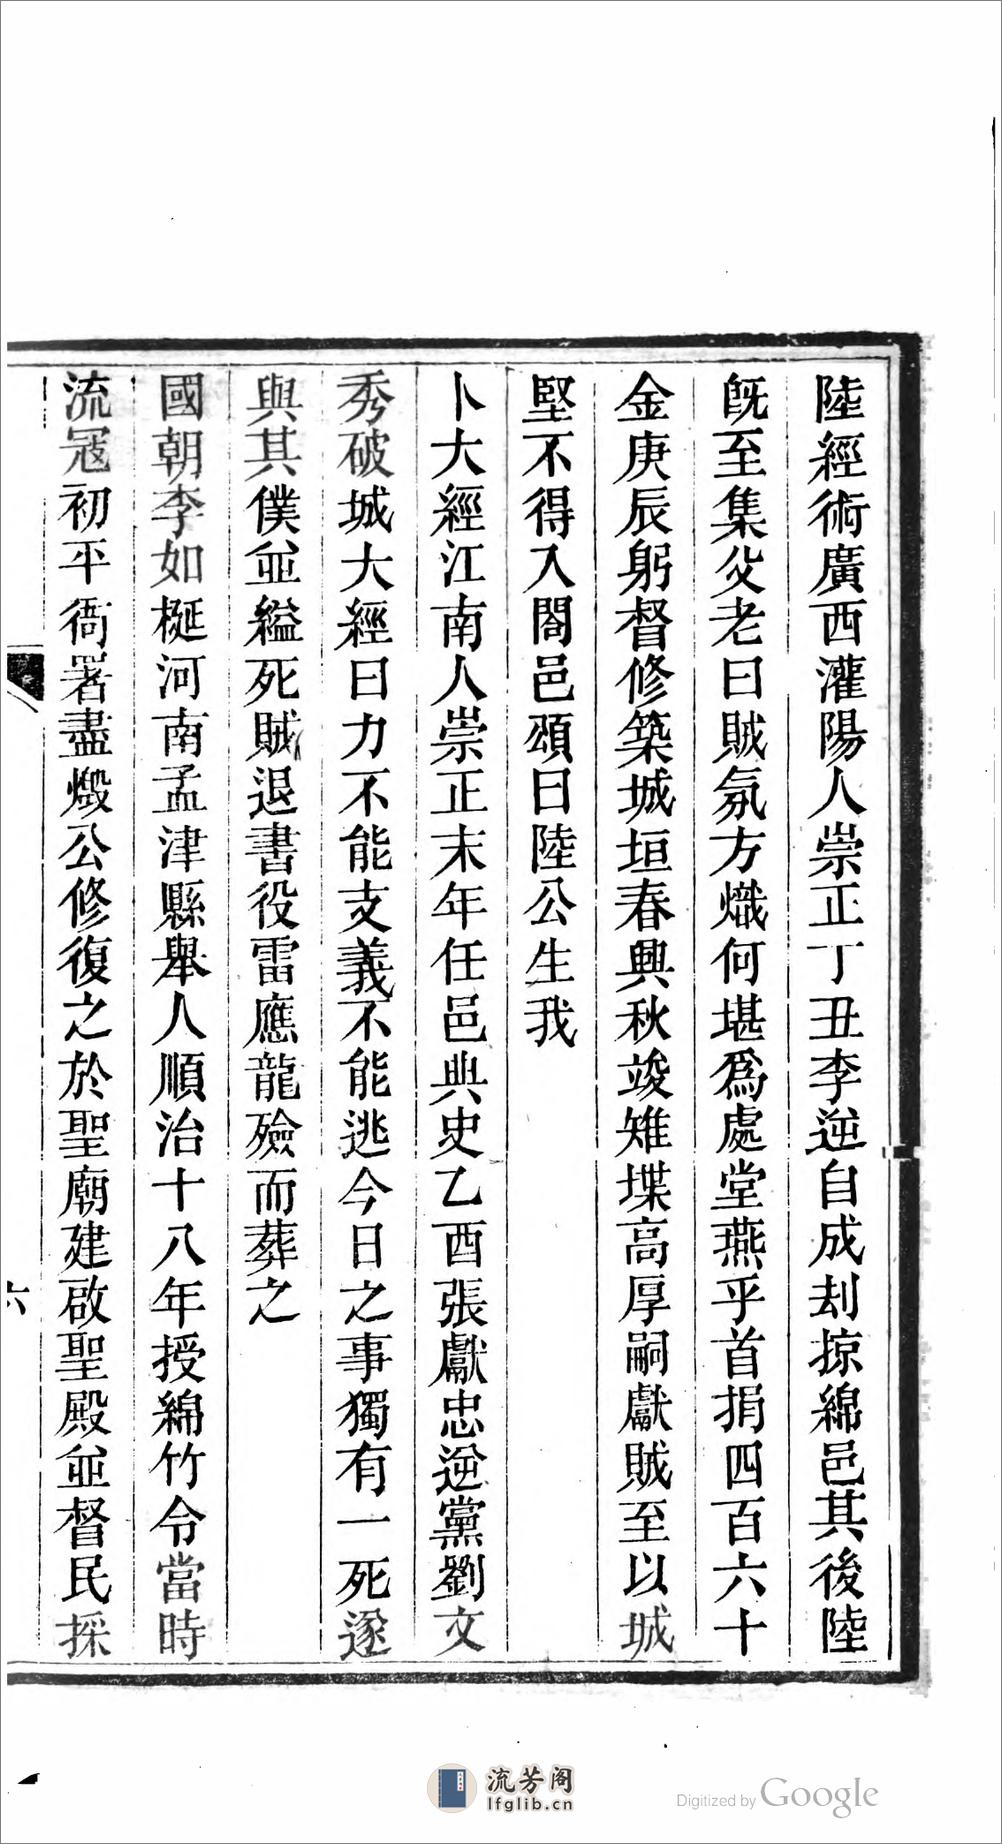 陸經術廣西灌陽人崇正丁丑李逆自成刦掠綿邑其後陸
旣至集父老曰賊氛方熾何堪爲處堂燕乎首捐四百六十
金庚辰躬督修築城垣春興秋竣雉堞高厚嗣獻賊至以城
堅不得入閤邑頌曰陸公生我
卜大經江南人崇正末年任邑典史乙酉張獻忠逆黨劉文
秀破城大經曰力不能支義不能逃今日之事獨有一死遂
與其僕並縊死賊退書役雷應龍殮而葬之
國朝李如梴河南孟津縣舉人順治十八年授綿竹令當時
流冦初平衙署盡燬公修復之於聖廟建啟聖殿並督民採
六
流芳阁
lfglib.cn
Digitized by Google